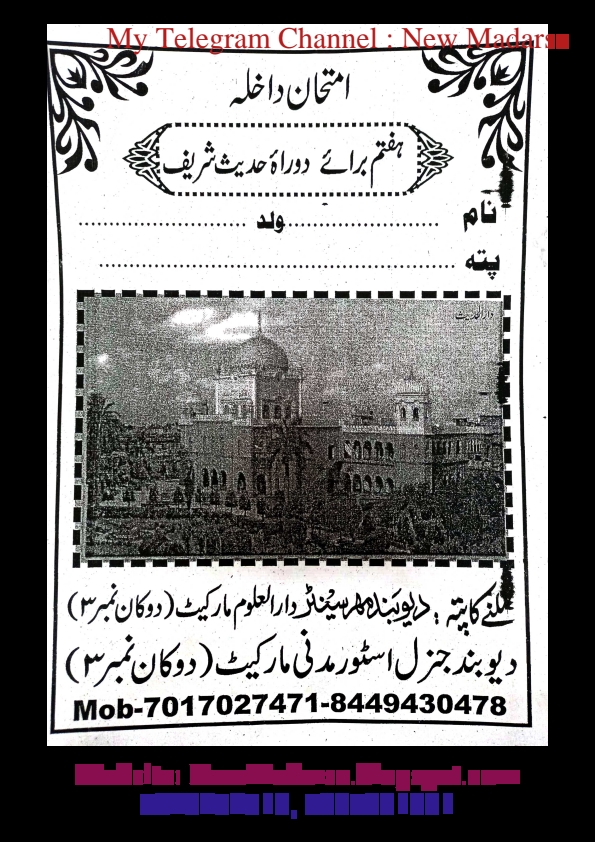 My Telegram Channel : New Madarsa
امتحان داخلہ
ہفتم برائے دوراۂ حدیث شریف
نام ........................ولد ..........................
پتہ ......................................................
دارالحدیث
ملنے کا پتہ : دیوبند مہر سینٹر دارالعلوم مارکیٹ (دوکان نمبر ۳)
دیوبند جنرل اسٹور مدنی مارکیٹ (دوکان نمبر ۳)
Mob-7017027471-8449430478